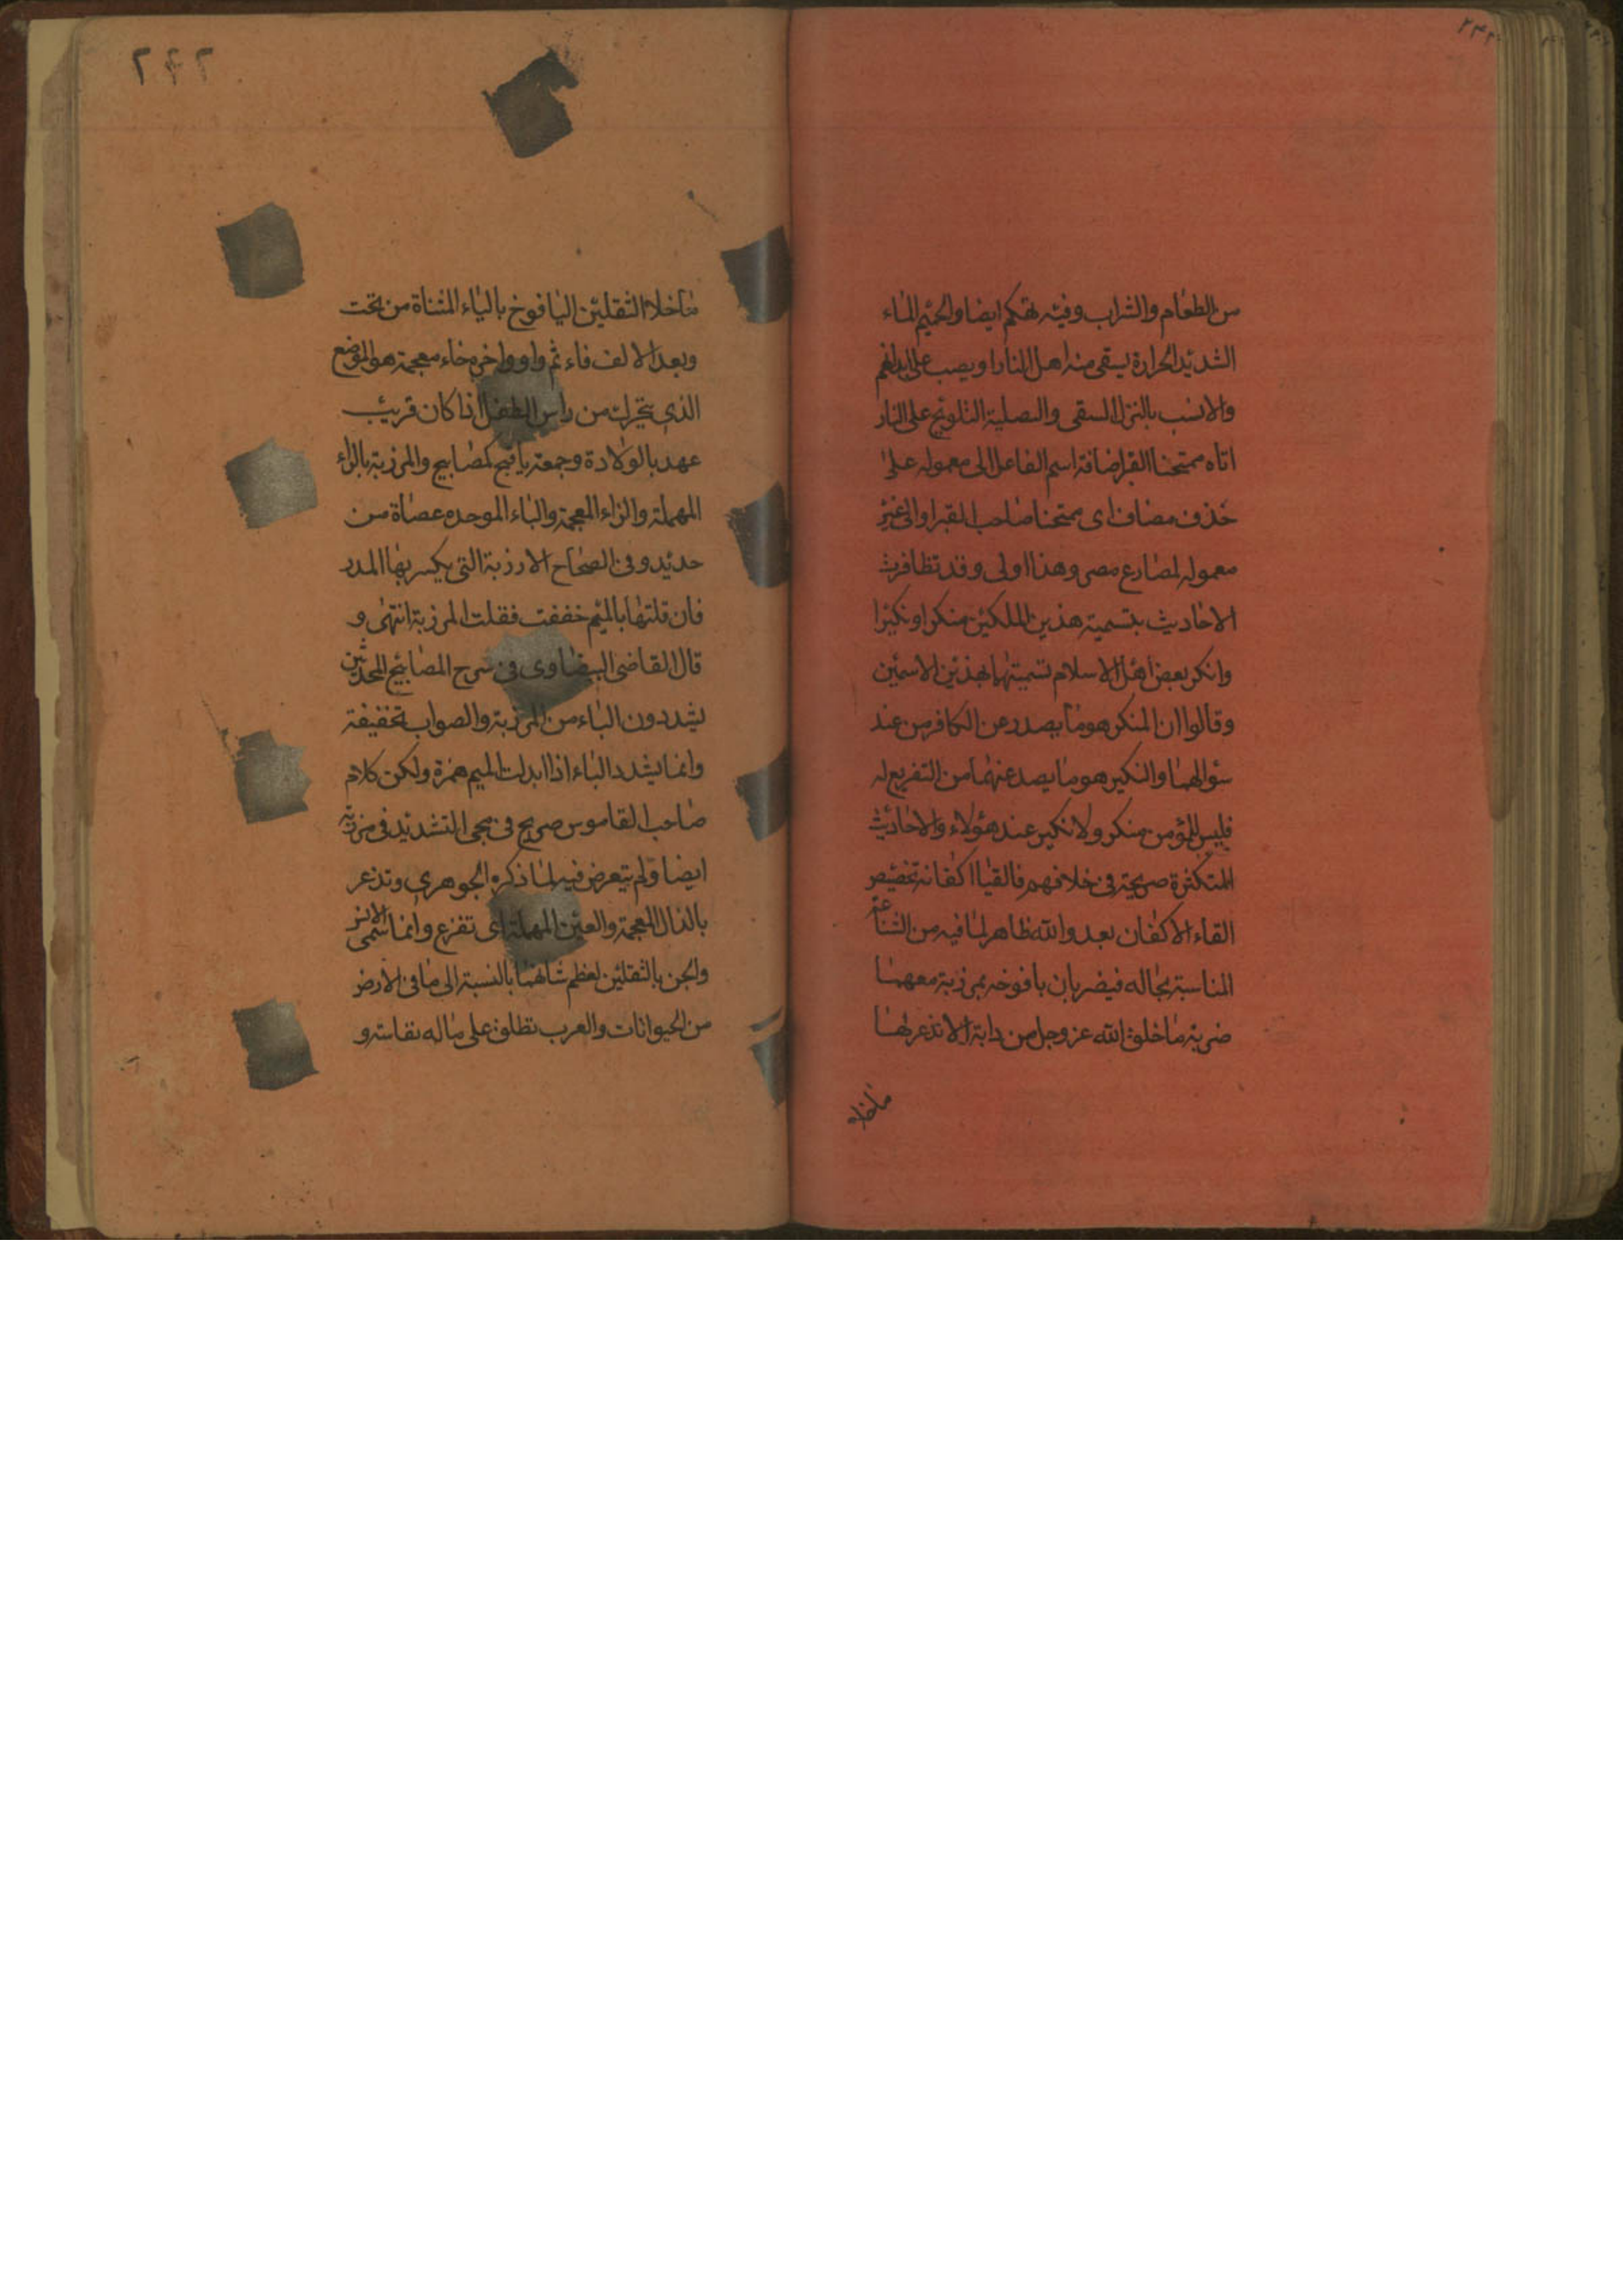 من الطعام والشراب وفيه تهكم ايضا والحميم الماء
الشديد الحرارة يسقى منه اهل النار او يصب على ابدانهم
والانسب بالنزل السقى والتصلية التلويح على النار
اتاه ممتحنا القبر اضافة اسم الفاعل الى معموله على
حذف مضاف اى ممتحنا صاحب القبر او الى غير
معموله لمصارع مصر وهذا اولى وقد تظافرت
الاحاديث بتسمية هذين الملكين منكرا ونكيرا
وانكر بعض اهل الاسلام تسميتهما بهذين الاسمين
وقالوا ان المنكر هو ما يصدر عن الكافر من عند
سؤالهما والنكير هو ما يصد عنهما من التفريع له
فليس للمؤمن منكر ولا نكير عند هؤلاء والاحاديث
المتكثرة صريحة فى خلافهم فالقيا اكفانه تخصيص
القاء الاكفان بعدو الله ظاهر لما فيه من الشناعة
المناسبة بحاله فيضربان يافوخه بمرزبة معهما
ضربة ما خلق الله عز وجل من دابة الا تذعر لها
ما خلا
٢٤٢
ما خلا الثقلين اليافوخ بالياء المثناة من تحت
وبعد الالف فاء ثم واو واخره خاء معجمة هو الموضع
الذى يتحرك من راس الطفل اذا كان قريب
عهد بالولادة وجمعه يافيخ كمصابيح والمرزبة بالراء
المهملة والزاء المعجمة والباء الموحده عصاة من
حديد وفى الصحاح الارزبة التى يكسر بها المدر
فان قلتها بالميم خففت فقلت المرزبة انتهى و
قال القاضى البيضاوى فى شرح المصابيح المحدثين
يشددون الباء من المرزبة والصواب تخفيفة
وانما يشدد الباء اذا ابدلت الميم همزة ولكن كلام
صاحب القاموس صريح فى مجى التشديد فى مرزبة
ايضا ولم يتعرض فيه لما ذكره الجوهرى وتذعر
بالذال المعجمة والعين المهملة اى تفزع وانما سمى الانس
والجن بالثقلين لعظم شانهما بالنسبة الى ما فى الارض
من الحيوانات والعرب تطلق على ماله نفاسة و